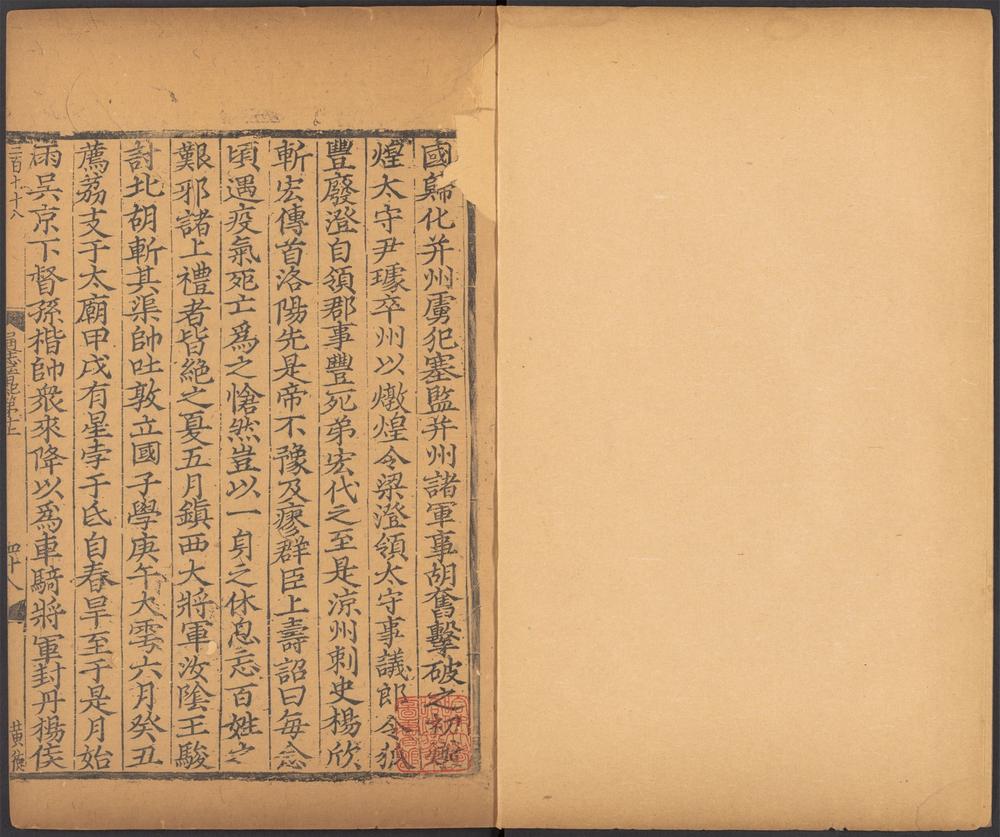 國歸化并州虜犯塞監并州諸軍事胡奮擊破之初燉
煌太守尹璩卒州以燉煌令梁澄領太守事議郎令狐
豐廢澄自領郡事豐死弟宏代之至是涼州刺史楊欣
斬宏傳首洛陽先是帝不豫及瘳群臣上壽詔曰每念
頃遇疫氣死亡爲之愴然豈以一身之休息忘百姓之
艱邪諸上禮者皆絶之夏五月鎮西大將軍汝陰王駿
討北胡斬其渠帥吐敦立國子學庚午大雩六月癸丑
薦荔支于太廟甲戌有星孛于氐自春旱至于是月始
雨吳京下督孫楷帥衆來降以爲車騎將軍封丹楊侯
四十八